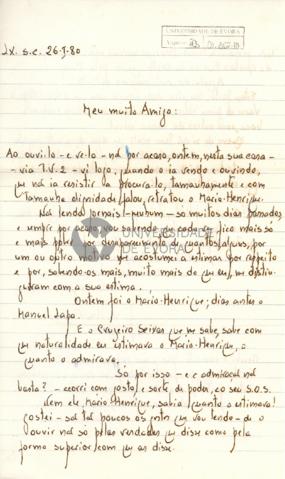 UNIVERSIDADE DE ÉVORA
Lx. s.c. 26-I-80
Meu muito Amigo:
Ao ouvi-lo - e ve-lo - não por acaso, ontem, nesta sua casa -
- via T.V. 2 - vi logo, quando o ia vendo e ouvindo,
que não ia resistir a procura-lo, tamanhamente e com
tamanha dignidade falou, retratou o Mario-Henrique.
Não lendo jornais! - nenhum - só muitos dias passados
e sempre por acaso vou sabendo que cada vez fico mais só
e mais pobre por desaparecimento de quantos, alguns, por
um ou outro motivo me acostumei a estimar por respeito
e por, sabendo-os mais, muito mais do que eu, me distin-
guiram com a sua estima.
Ontem foi o Mario-Henrique; dias antes o
Manuel Lapa.
E o Cruzeiro Seixas que me sabe, sabe com
que naturalidade eu estimava o Mario-Henrique, o
quanto o admirava.
Só por isso - e admiraçao não
basta? - corri com gosto, e sorte de poder, ao seu S.O.S.
Nem ele, Mario-Henrique, sabia quanto o estimava!
Gostei - sal tão poucos os que vou tendo - de o
ouvir não só pelas verdades que disse como pela
forma superior com que as disse.
UNIVERSIDADE
DE ÉVORA